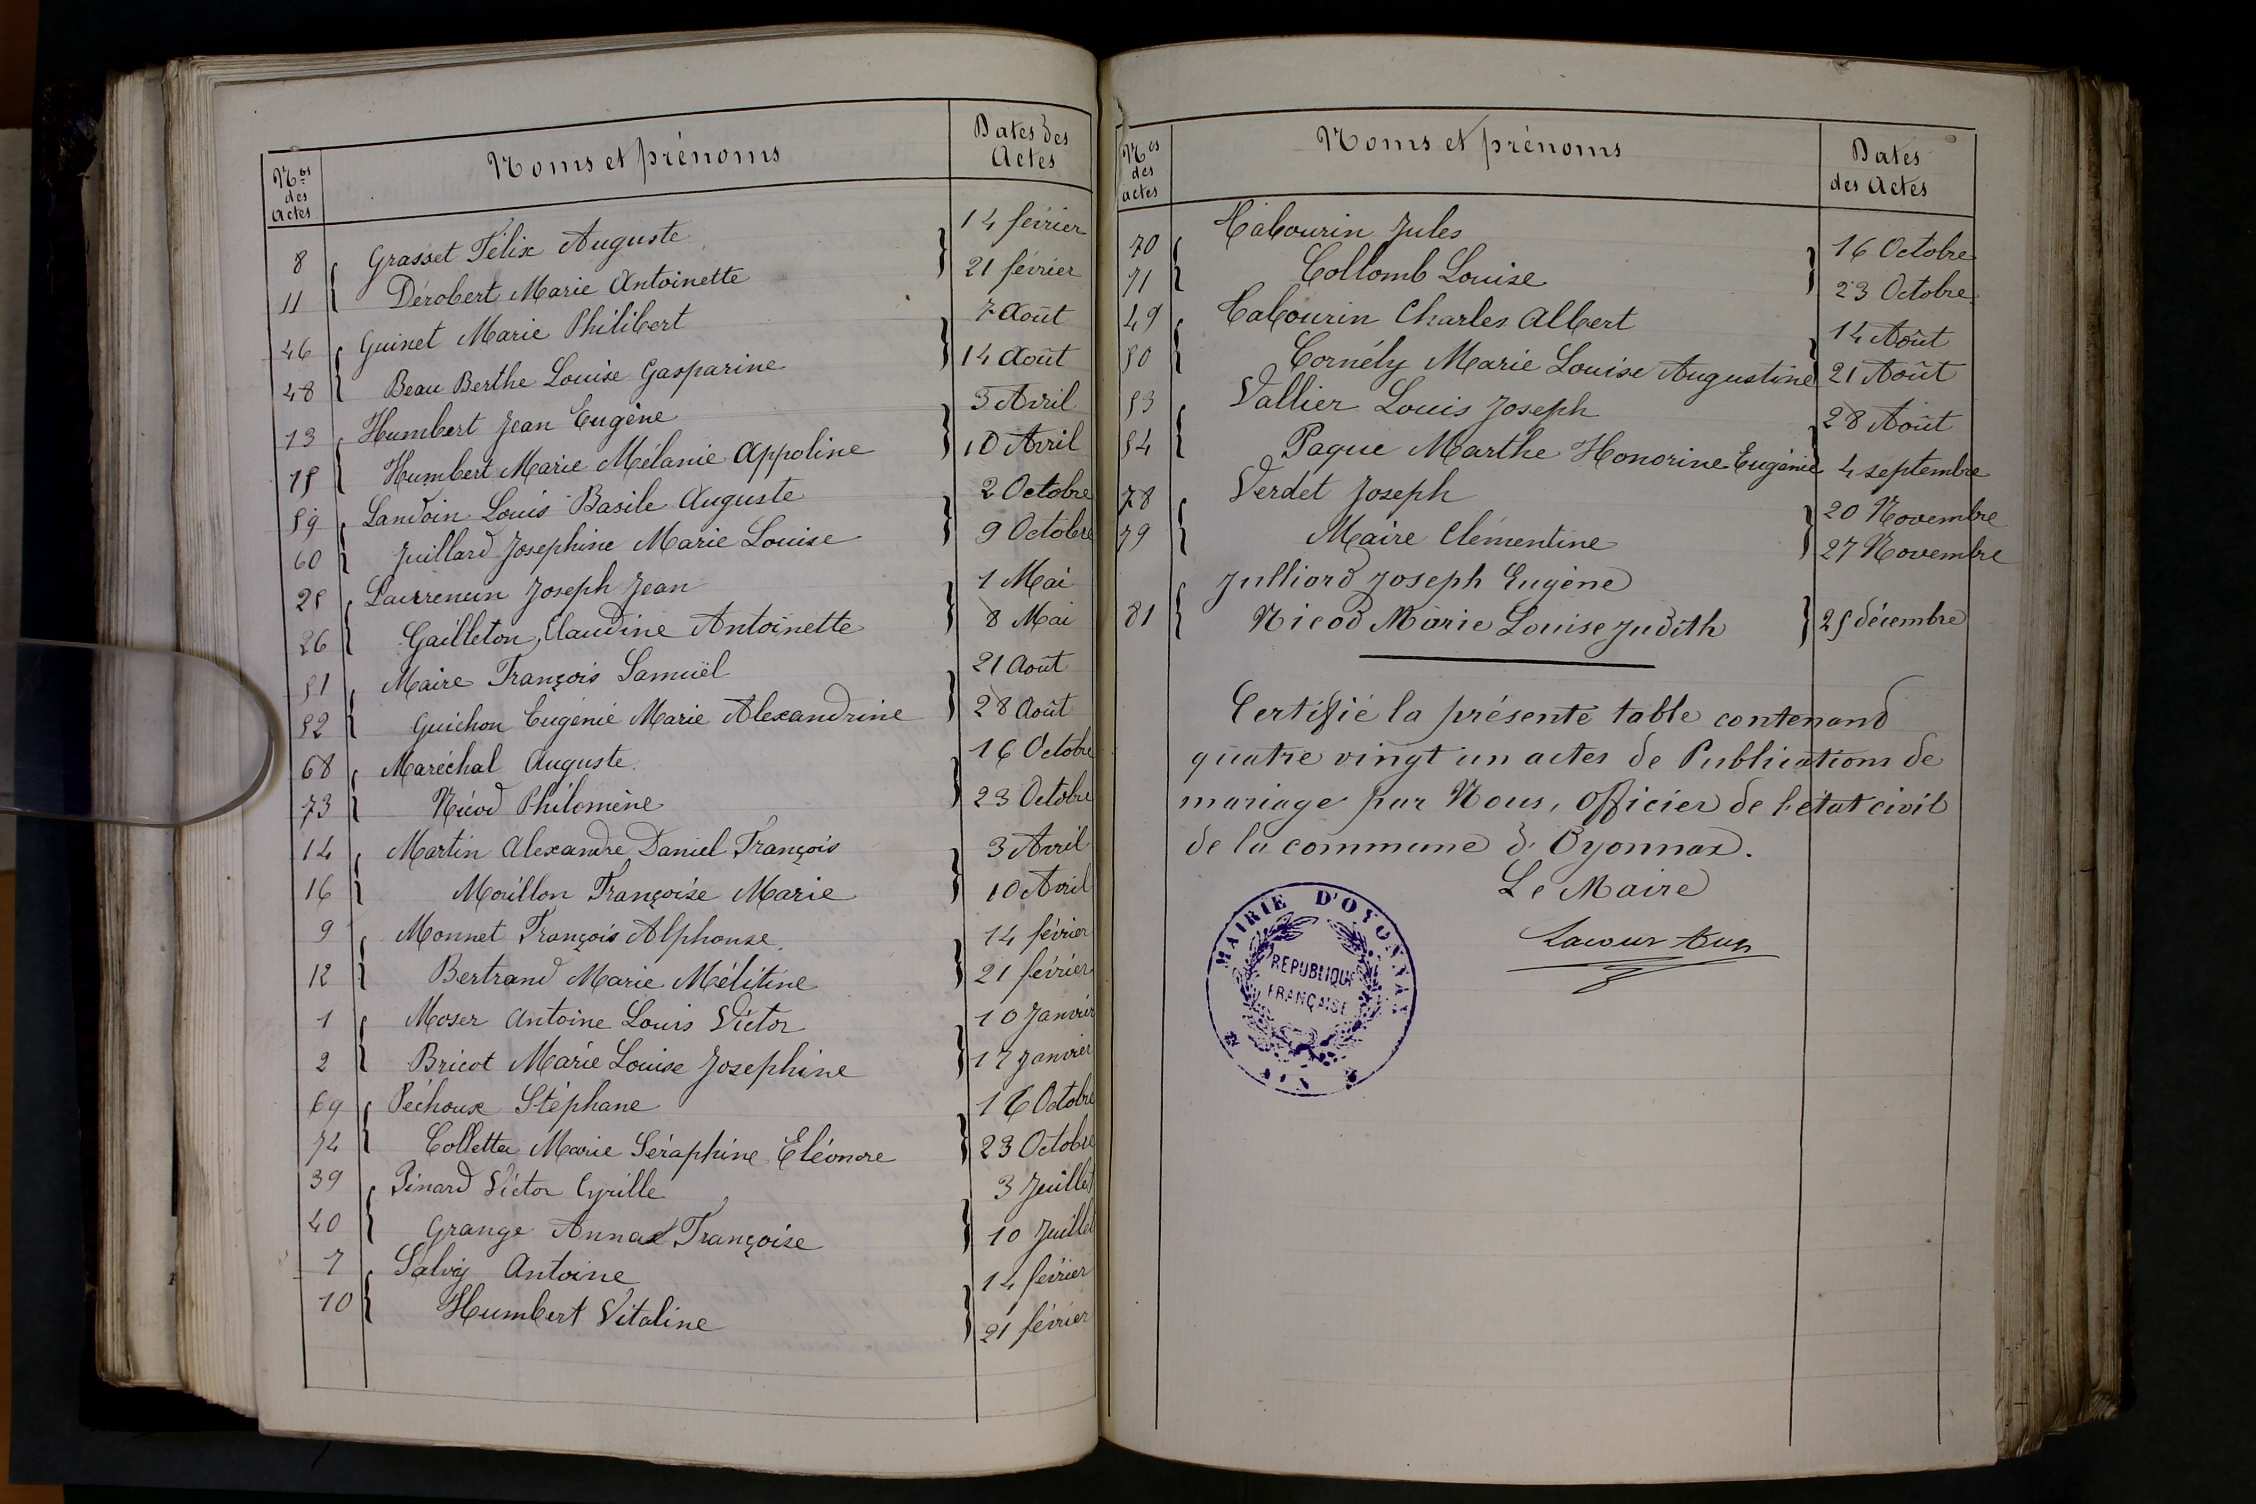 Nos des Actes
Noms et prénoms
Dates des Actes
8 Grasset Félix Auguste 14 février
11 Dérobert Marie Antoinette 21 février
46 Guinet Marie Philibert 7 Août
48 Beau Berthe Louise Gasparine 14 Août
13 Humbert Jean Eugène 3 Avril
15 Humbert Marie Mélanie Appoline 10 Avril
59 Landoin Louis Basile Auguste 2 Octobre
60 Juillard Josephine Marie Louise 9 Octobre
25 Joseph Jean 1 Mai
26 Gailleton Claudine Antoinette 8 Mai
51 Maire François Samuël 21 Août
52 Guichon Eugénie Marie Alexandrine 28 Août
68 Maréchal Auguste 16 Octobre
73 Nicod Philomène 23 Octobre
14 Martin Alexandre Daniel François 3 Avril
16 Morillon Françoise Marie 10 Avril
9 Monnet François Alphonse 14 février
12 Bertrand Marie Mélitine 21 février
1 Moser Antoine Louis Victor 10 Janvier
2 Bricot Marie Louise Josephine 17 Janvier
69 Péchoux Stéphane 16 Octobre
74 Colletta Marie Séraphine Eléonore 23 Octobre
39 Pinard Victor Cyrille 3 Juillet
40 Grange Anna Françoise 10 Juillet
7 Salvy Antoine 14 février
10 Humbert Vitaline 21 février
Nos des actes
Noms et prénoms
Dates des Actes
70 Tabourin Jules 16 Octobre
71 Collomb Louise 23 Octobre
49 Tabourin Charles Albert 14 Août
50 Cornély Marie Louise Augustine 21 Août
53 Vallier Louis Joseph 28 Août
54 Paque Marthe Honorine Eugénie 4 septembre
78 Verdet Joseph 20 Novembre
79 Maire Clémentine 27 Novembre
Julliard Joseph Eugène
81 Nicod Marie Louise Judith 25 décembre
Certifié la présente table contenand
quatre vingt un actes de Publications de
mariage par Nous, Officier de l'état civil
de la commune d'Oyonnax.
Le Maire
MAIRIE D'OYONNAX
RÉPUBLIQUE
FRANÇAISE
AIN